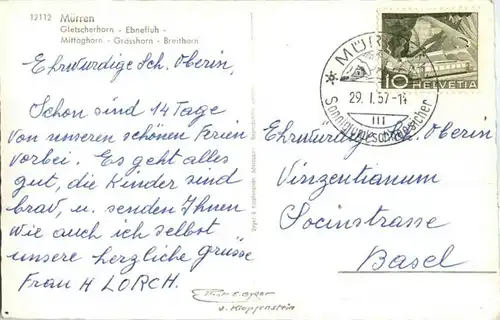 12112 Mürren
Gletscherhorn - Ebnefluh -
Mittaghorn - Grosshorn - Breithorn
Ehrwürdige Sch. Oberin,
Schon sind 14 Tage
von unseren schönen Ferien
vorbei. Es geht alles
gut, die Kinder sind
brav, u. senden Ihnen
wie auch ich selbst
unsere herzliche Grüsse
Frau H LORCH.
10 HELVETIA
29. I. 57-14
III
Ehrwürdige Oberin
Vinzentianum
Socinstrasse
Basel